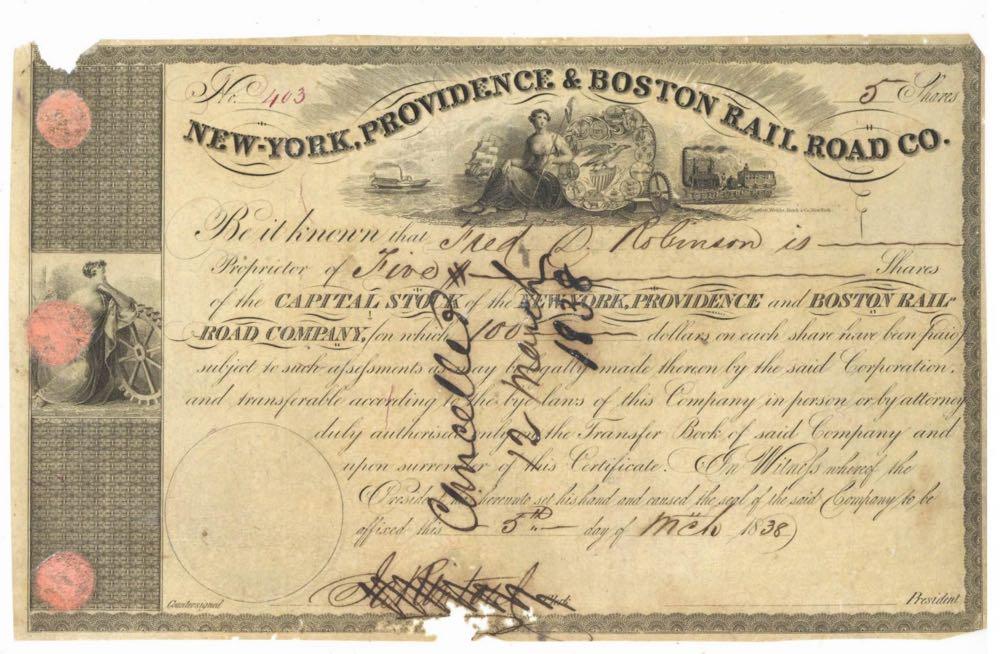 No. 403
5 Shares
NEW-YORK, PROVIDENCE & BOSTON RAIL ROAD CO.
Be it known that Fred Robinson is
Proprietor of Five Shares
of the CAPITAL STOCK of the NEW-YORK, PROVIDENCE and BOSTON RAIL-
ROAD COMPANY, for which 100 dollars on each share have been paid
subject to such assessments as may be legally made thereon by the said Corporation,
and transferable according to the bye laws of this Company in person or by attorney
duly authorised only in the Transfer Book of said Company and
upon surrender of this Certificate. In Witness whereof the
President has hereunto set his hand and caused the seal of the said Company to be
affixed this 5th day of Mch 1838
Cancelled
12 March
1838
Countersigned
Clerk
President